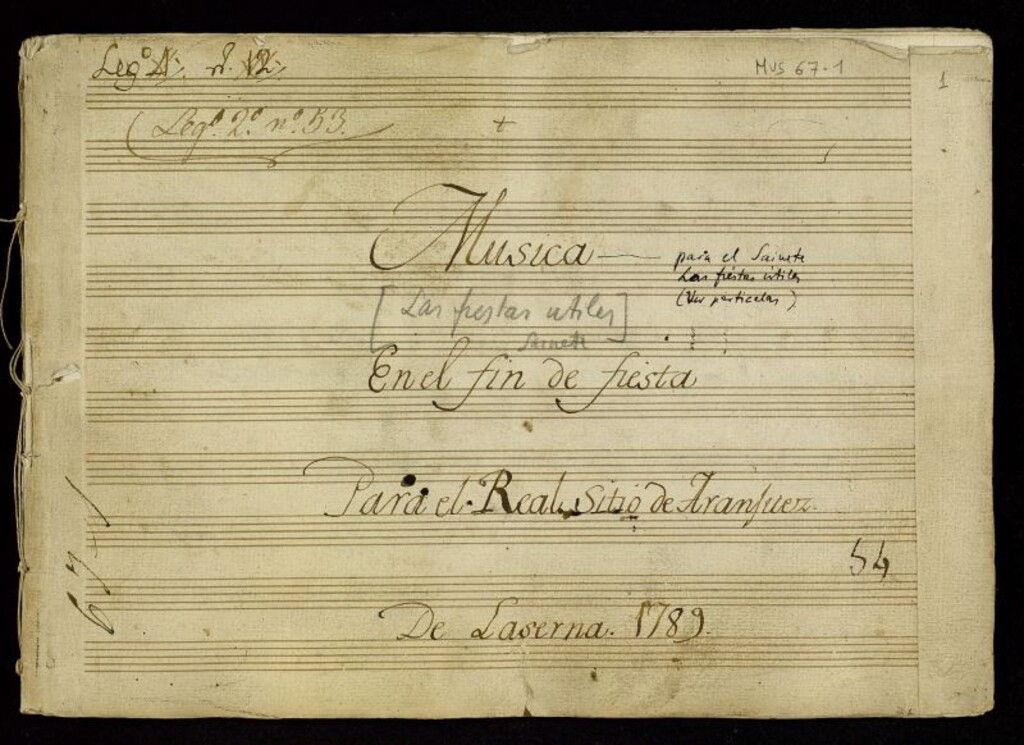 Leg.º 4. n. 12.
MUS 67-1
1
Leg.º 2.º n.º 53.
Musica
para el Sainete
Las fiestas útiles
(Ver particelas)
[Las fiestas utiles]
Sainete
En el fin de fiesta
Para el Real Sitio de Aranjuez.
54
67-1
De Laserna. 1789.